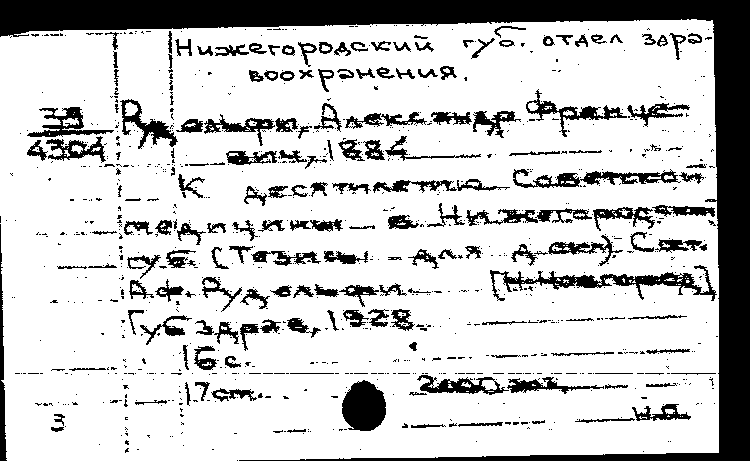 Нижегородский губ. отдел здра-
воохранения.
39 Рудельфи, Александр Франце-
4304 вич, 1884
К десятилетию Советской
медицины в Нижегородской
губ. (Тезисы для докл) Сост.
А.Ф. Рудельфи. [Н.Новгород],
Губздрав, 1928.
16 с.
17 cm. 2000 экз.
3